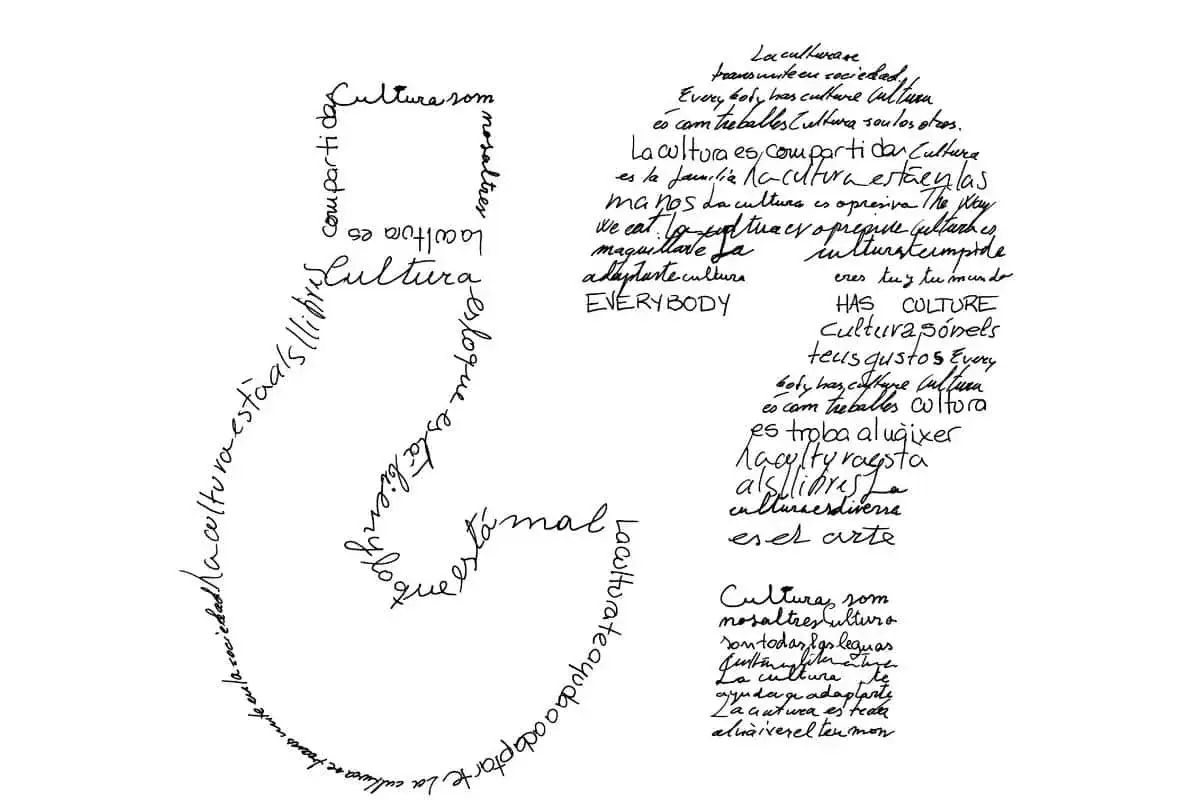 Cultura som
nosaltres
La cultura es
compartida
Cultura
es lo que está bien y lo
que está mal
La cultura te ayuda a adaptarte La cultura se transmite en la sociedad La cultura està als llibres
La cultura se
transmite en sociedad.
Everybody has culture Cultura
és com treballes Cultura son los otros.
La cultura es compartida Cultura
es la familia La cultura está en las
manos La cultura es opresiva The way
we eat. La cultura es opresive Cultura es
maquillarse La culturate
adaptarte cultura eres tu y tu mundo
EVERYBODY HAS CULTURE
Cultura són els
teus gustos Every
body has culture Cultura
és com treballes cultura
es troba al uàixer
La cultura esta
als llibres La
cultura es diversa
es el arte
Cultura som
nosaltres Cultura
son todas las leguas
La cultura te
ayuda a adaptarte
La cultura es
aluàixer el teu mon